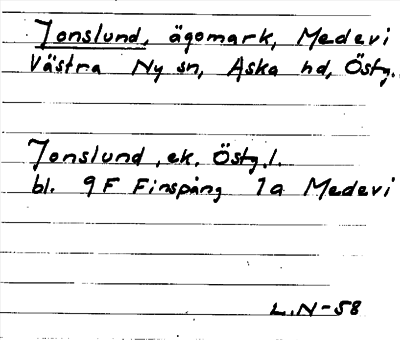 Jonslund, ägomark, Medevi
Västra Ny sn, Aska hd, Östg.
Jonslund, ek. Östg.l.
bl. 9F Finspång 1a Medevi
L.N-58